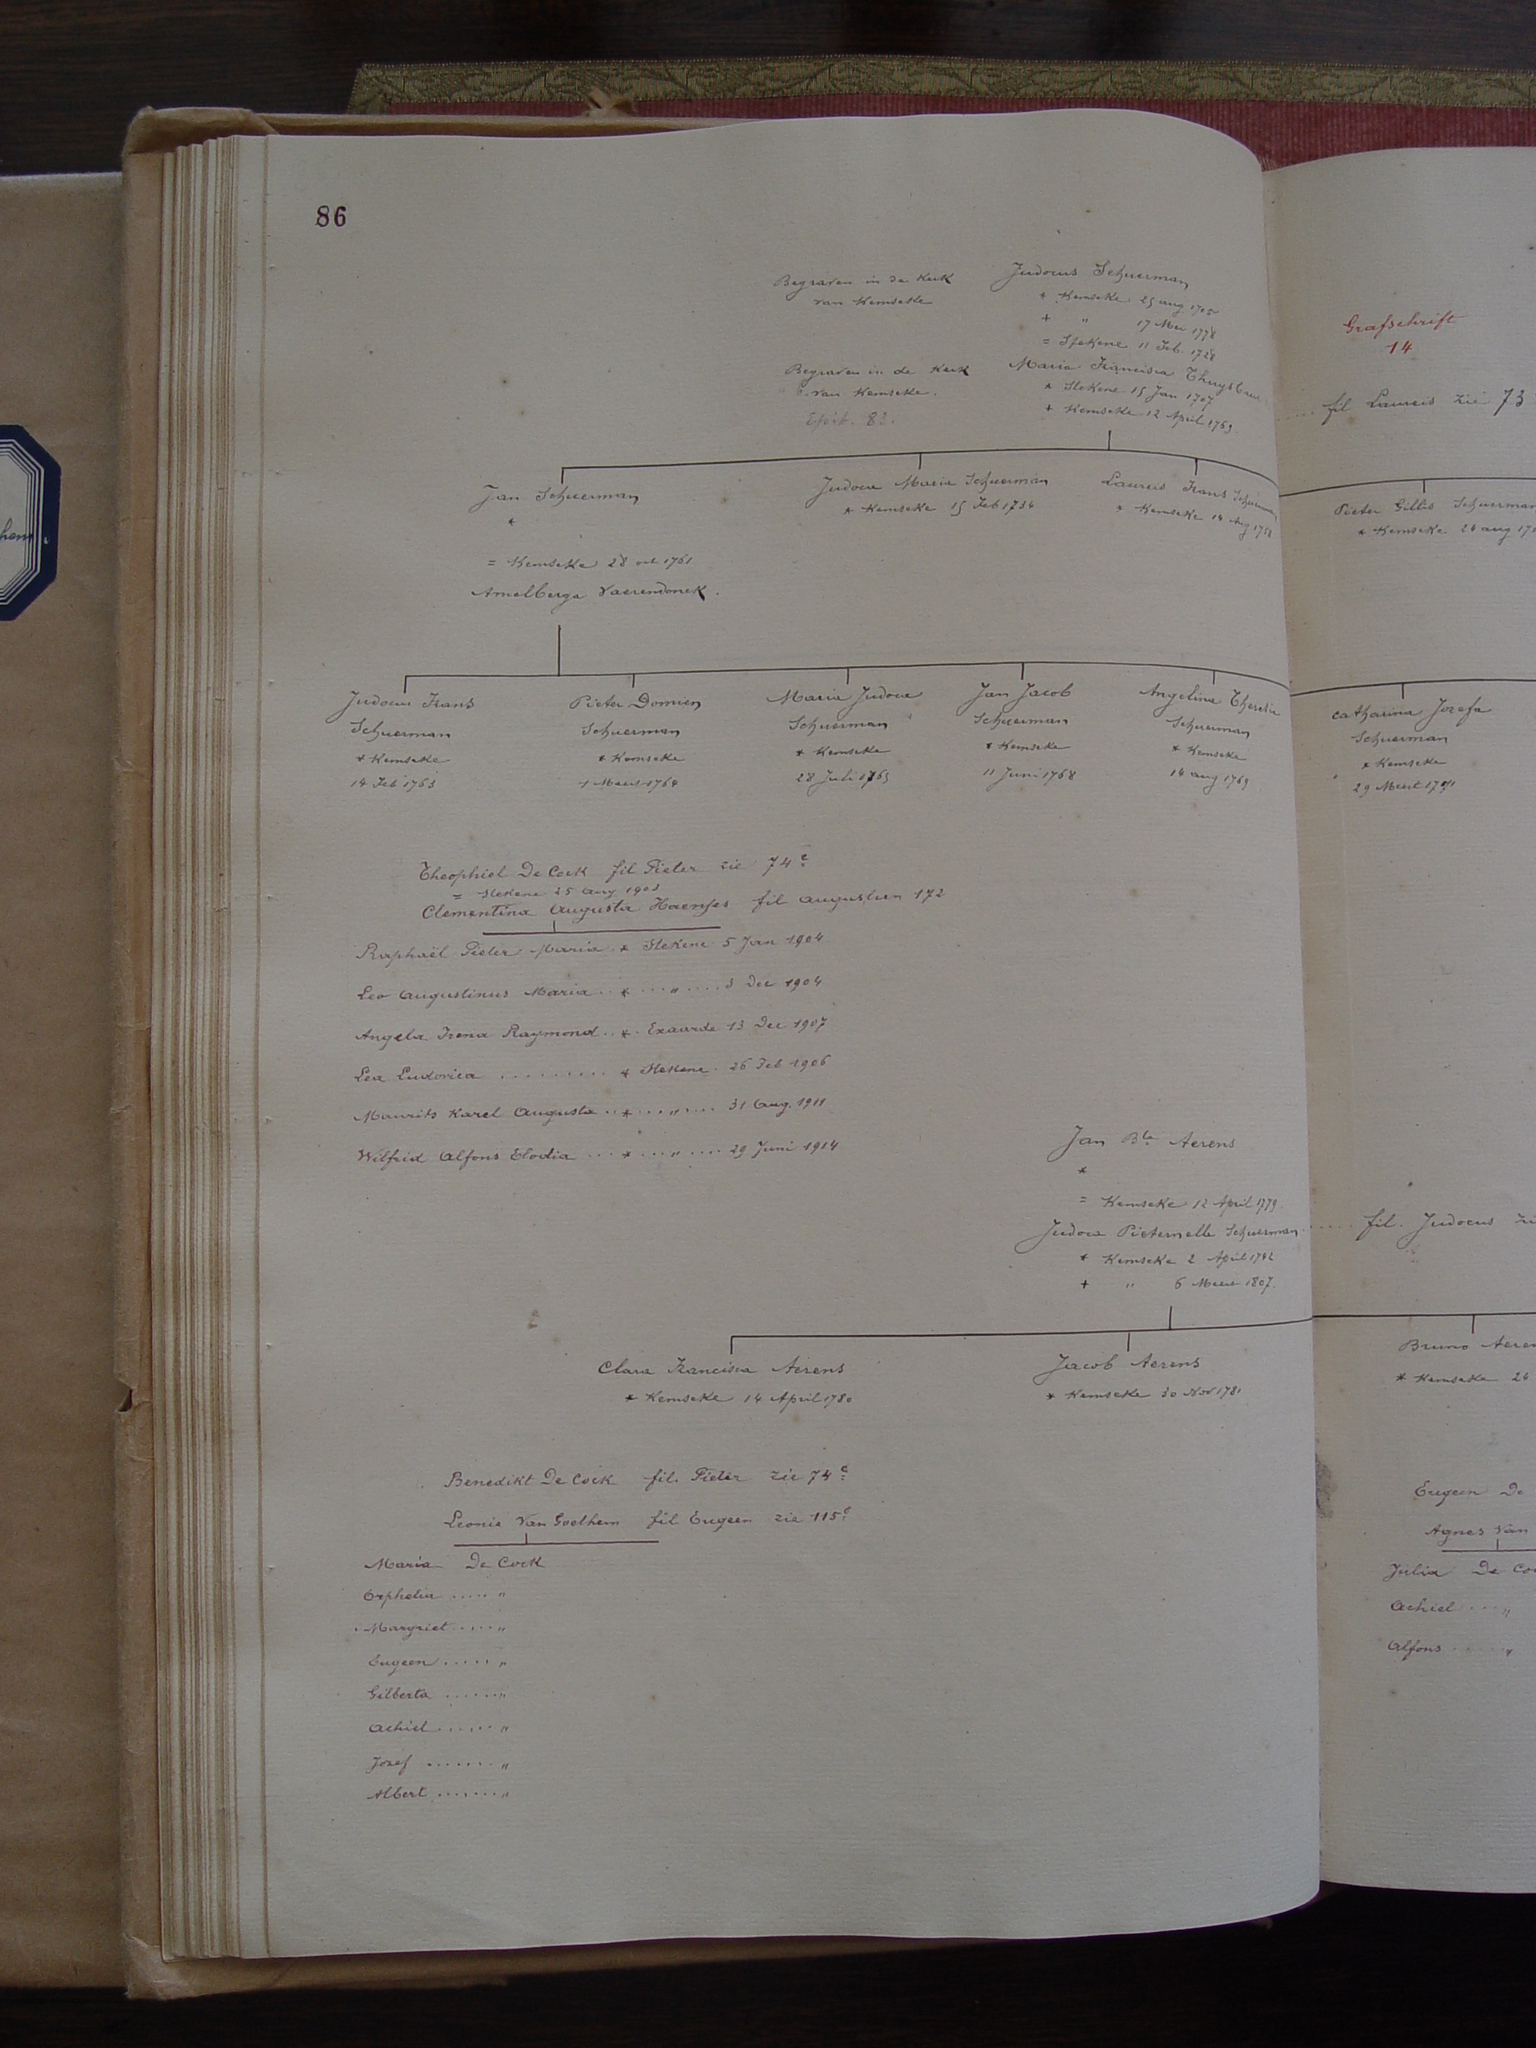 86
Begraven in de Kerk
van Kemseke
Judocus Schuerman
* Kemseke 25 aug 1705
+ " 17 Mei 1778
= Stekene 11 Feb. 1728
Begraven in de Kerk
van Kemseke.
Epit. 83.
Maria Francisca
* Stekene 15 Jan 1707
+ Kemseke 12 April 1769
Grafschrift
14
fil Laureis zie 73
Jan Schuerman
*
= Kemseke 28 oct 1761
Amelberga Vaerendonck.
Judoca Maria Schuerman
* Kemseke 15 Feb 1734
Laureis Frans Schuerman
* Kemseke 14 Aug
Pieter Gillis Schuerman
* Kemseke 24 aug
Judocus Frans
Schuerman
* Kemseke
14 Feb 1763
Pieter Domien
Schuerman
* Kemseke
1 Meert 1764
Maria Judoca
Schuerman
* Kemseke
28 Juli 1765
Jan Jacob
Schuerman
* Kemseke
11 Juni 1768
Angelina Theresia
Schuerman
* Kemseke
14 aug 1769
Catharina Jozefa
Schuerman
* Kemseke
29 Meert 1771
Theophiel De Cock fil Pieter zie 74e
= Stekene 25 Aug 1903
Clementina Augusta Haenses fil Augustien 172
Raphaël Pieter Maria * Stekene 5 Jan 1904
Leo Augustinus Maria .. * ... " .... 3 Dec 1904
Angela Irena Raymond .. * . Exaarde 13 Dec 1907
Lea Ludovica ......... * Stekene. 26 Feb 1906
Maurits Karel Augusta .. * ... " .... 31 Aug. 1911
Wilfrid Alfons Elodia ... * ... " .... 29 Juni 1914
Jan Bte Aerens
*
= Kemseke 12 April 1779
Judoca Pieternelle Schuerman ..... fil. Judocus
* Kemseke 2 April 1742
+ " 6 Meert 1807.
Clara Francisca Aerens
* Kemseke 14 April 1780
Jacob Aerens
* Kemseke 30 Nov 1781
Bruno
* Kemseke 24
Benedikt De Cock fil. Pieter zie 74e
Leonie Van Goethem fil Eugeen zie 115e
Maria De Cock
Orphelia ..... "
Margriet ..... "
Eugeen ..... "
Gilberta ...... "
Achiel ...... "
Jozef ....... "
Albert ....... "
Eugeen De
Agnes Van
Julia De
Achiel ... "
Alfons .... "